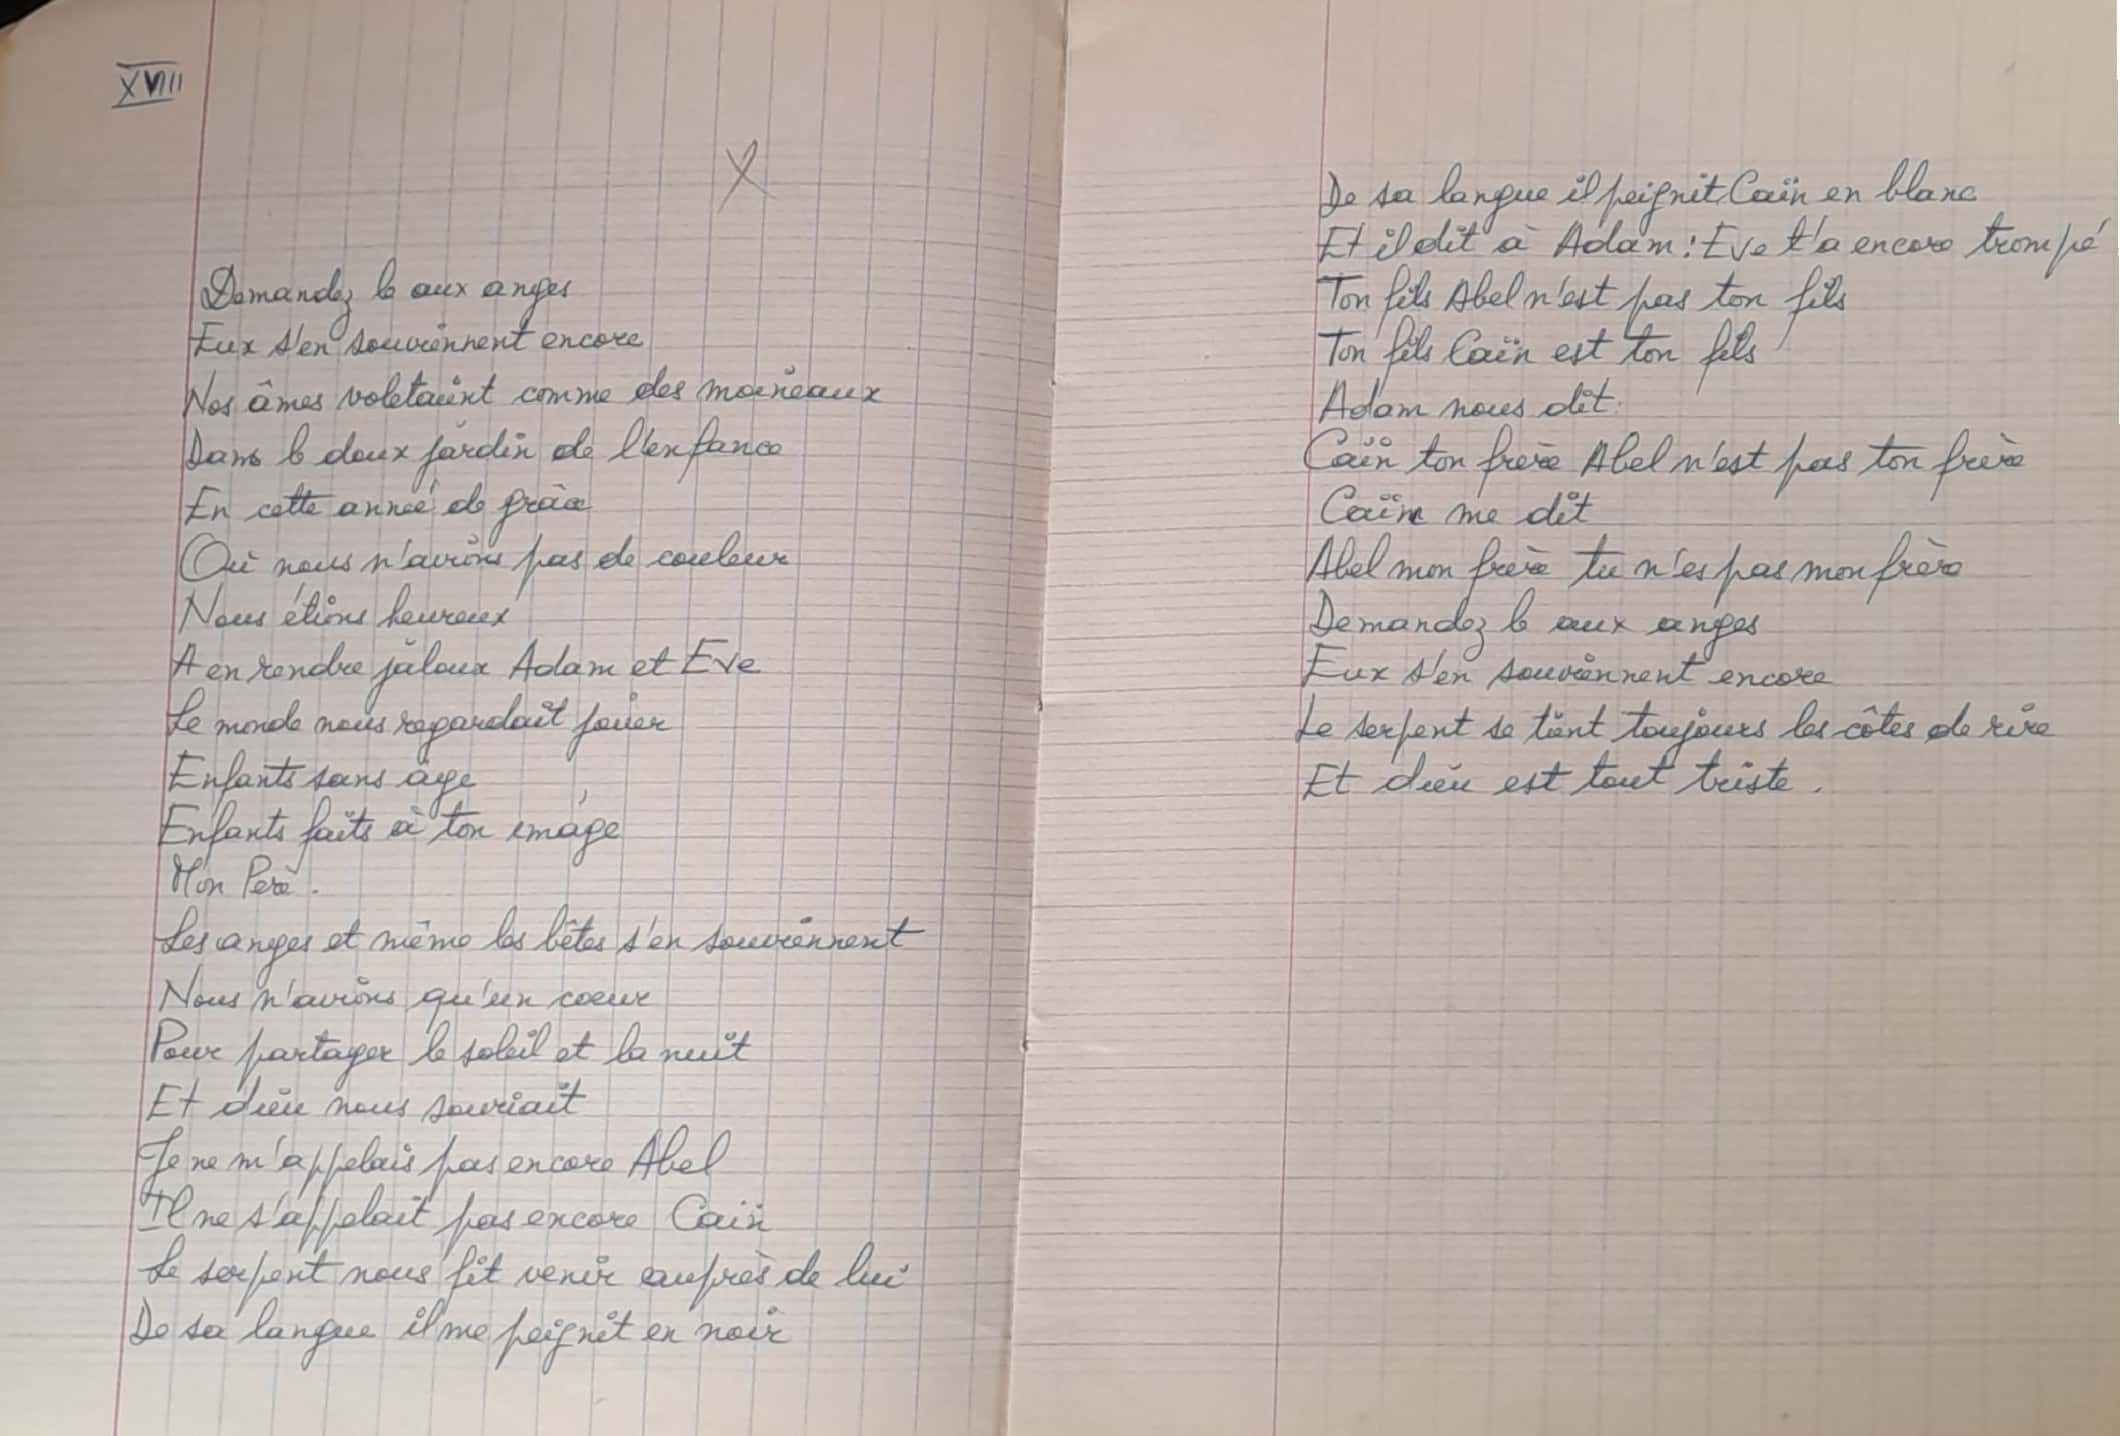 XVIII
X
Demandez le aux anges
Eux s'en souviennent encore
Nos âmes voletaient comme des moineaux
Dans le doux jardin de l'enfance
En cette année de grâce
Où nous n'avions pas de couleur
Nous étions heureux
A en rendre jaloux Adam et Eve
Le monde nous regardait jouer
Enfants sans âge
Enfants faits à ton image
Mon Père.
Les anges et même les bêtes s'en souviennent
Nous n'avions qu'un coeur
Pour partager le soleil et la nuit
Et dieu nous souriait
Je ne m'appelais pas encore Abel
Il ne s'appelait pas encore Caïn
Le serpent nous fit venir auprès de lui
De sa langue il me peignit en noir
De sa langue il peignit Caïn en blanc
Et il dit à Adam : Eve t'a encore trompé
Ton fils Abel n'est pas ton fils
Ton fils Caïn est ton fils
Adam nous dit :
Caïn ton frère Abel n'est pas ton frère
Caïn me dit
Abel mon frère tu n'es pas mon frère
Demandez le aux anges
Eux s'en souviennent encore
Le serpent se tient toujours les côtes de rire
Et dieu est tout triste.